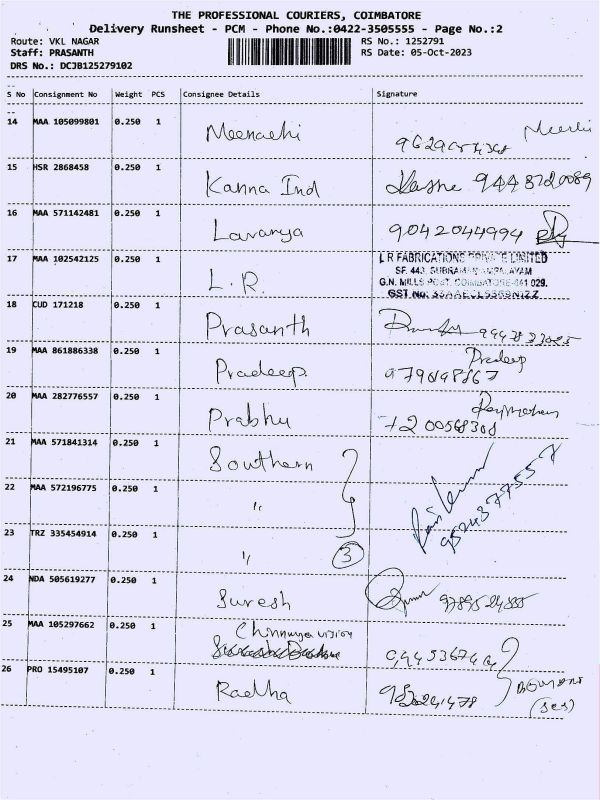 THE PROFESSIONAL COURIERS, COIMBATORE
Delivery Runsheet - PCM - Phone No.:0422-3505555 - Page No.:2
Route: VKL NAGAR RS No.: 1252791
Staff: PRASANTH RS Date: 05-Oct-2023
DRS No.: DCJB125279102
S No Consignment No Weight PCS Consignee Details Signature
14 MAA 105099801 0.250 1 Meenachi
15 HSR 2868458 0.250 1 Kanna Ind 9448720089
16 MAA 571142481 0.250 1 Lavanya 9042044994
17 MAA 102542125 0.250 1 L.R. L R FABRICATIONS PRIVATE LIMITED
SF. 443, SUBRAMANIAMPALAYAM
G.N. MILLS POST, COIMBATORE-641 029.
GST No:
18 CUD 171218 0.250 1 Prasanth
19 MAA 861886338 0.250 1 Pradeep Pradeep
20 MAA 282776557 0.250 1 Prabhu 7200568308
21 MAA 571841314 0.250 1 Southern
22 MAA 572196775 0.250 1 "
23 TRZ 335454914 0.250 1 " 3
9524377557
24 NDA 505619277 0.250 1 Suresh 9789524855
25 MAA 105297662 0.250 1
26 PRO 15495107 0.250 1 Radha